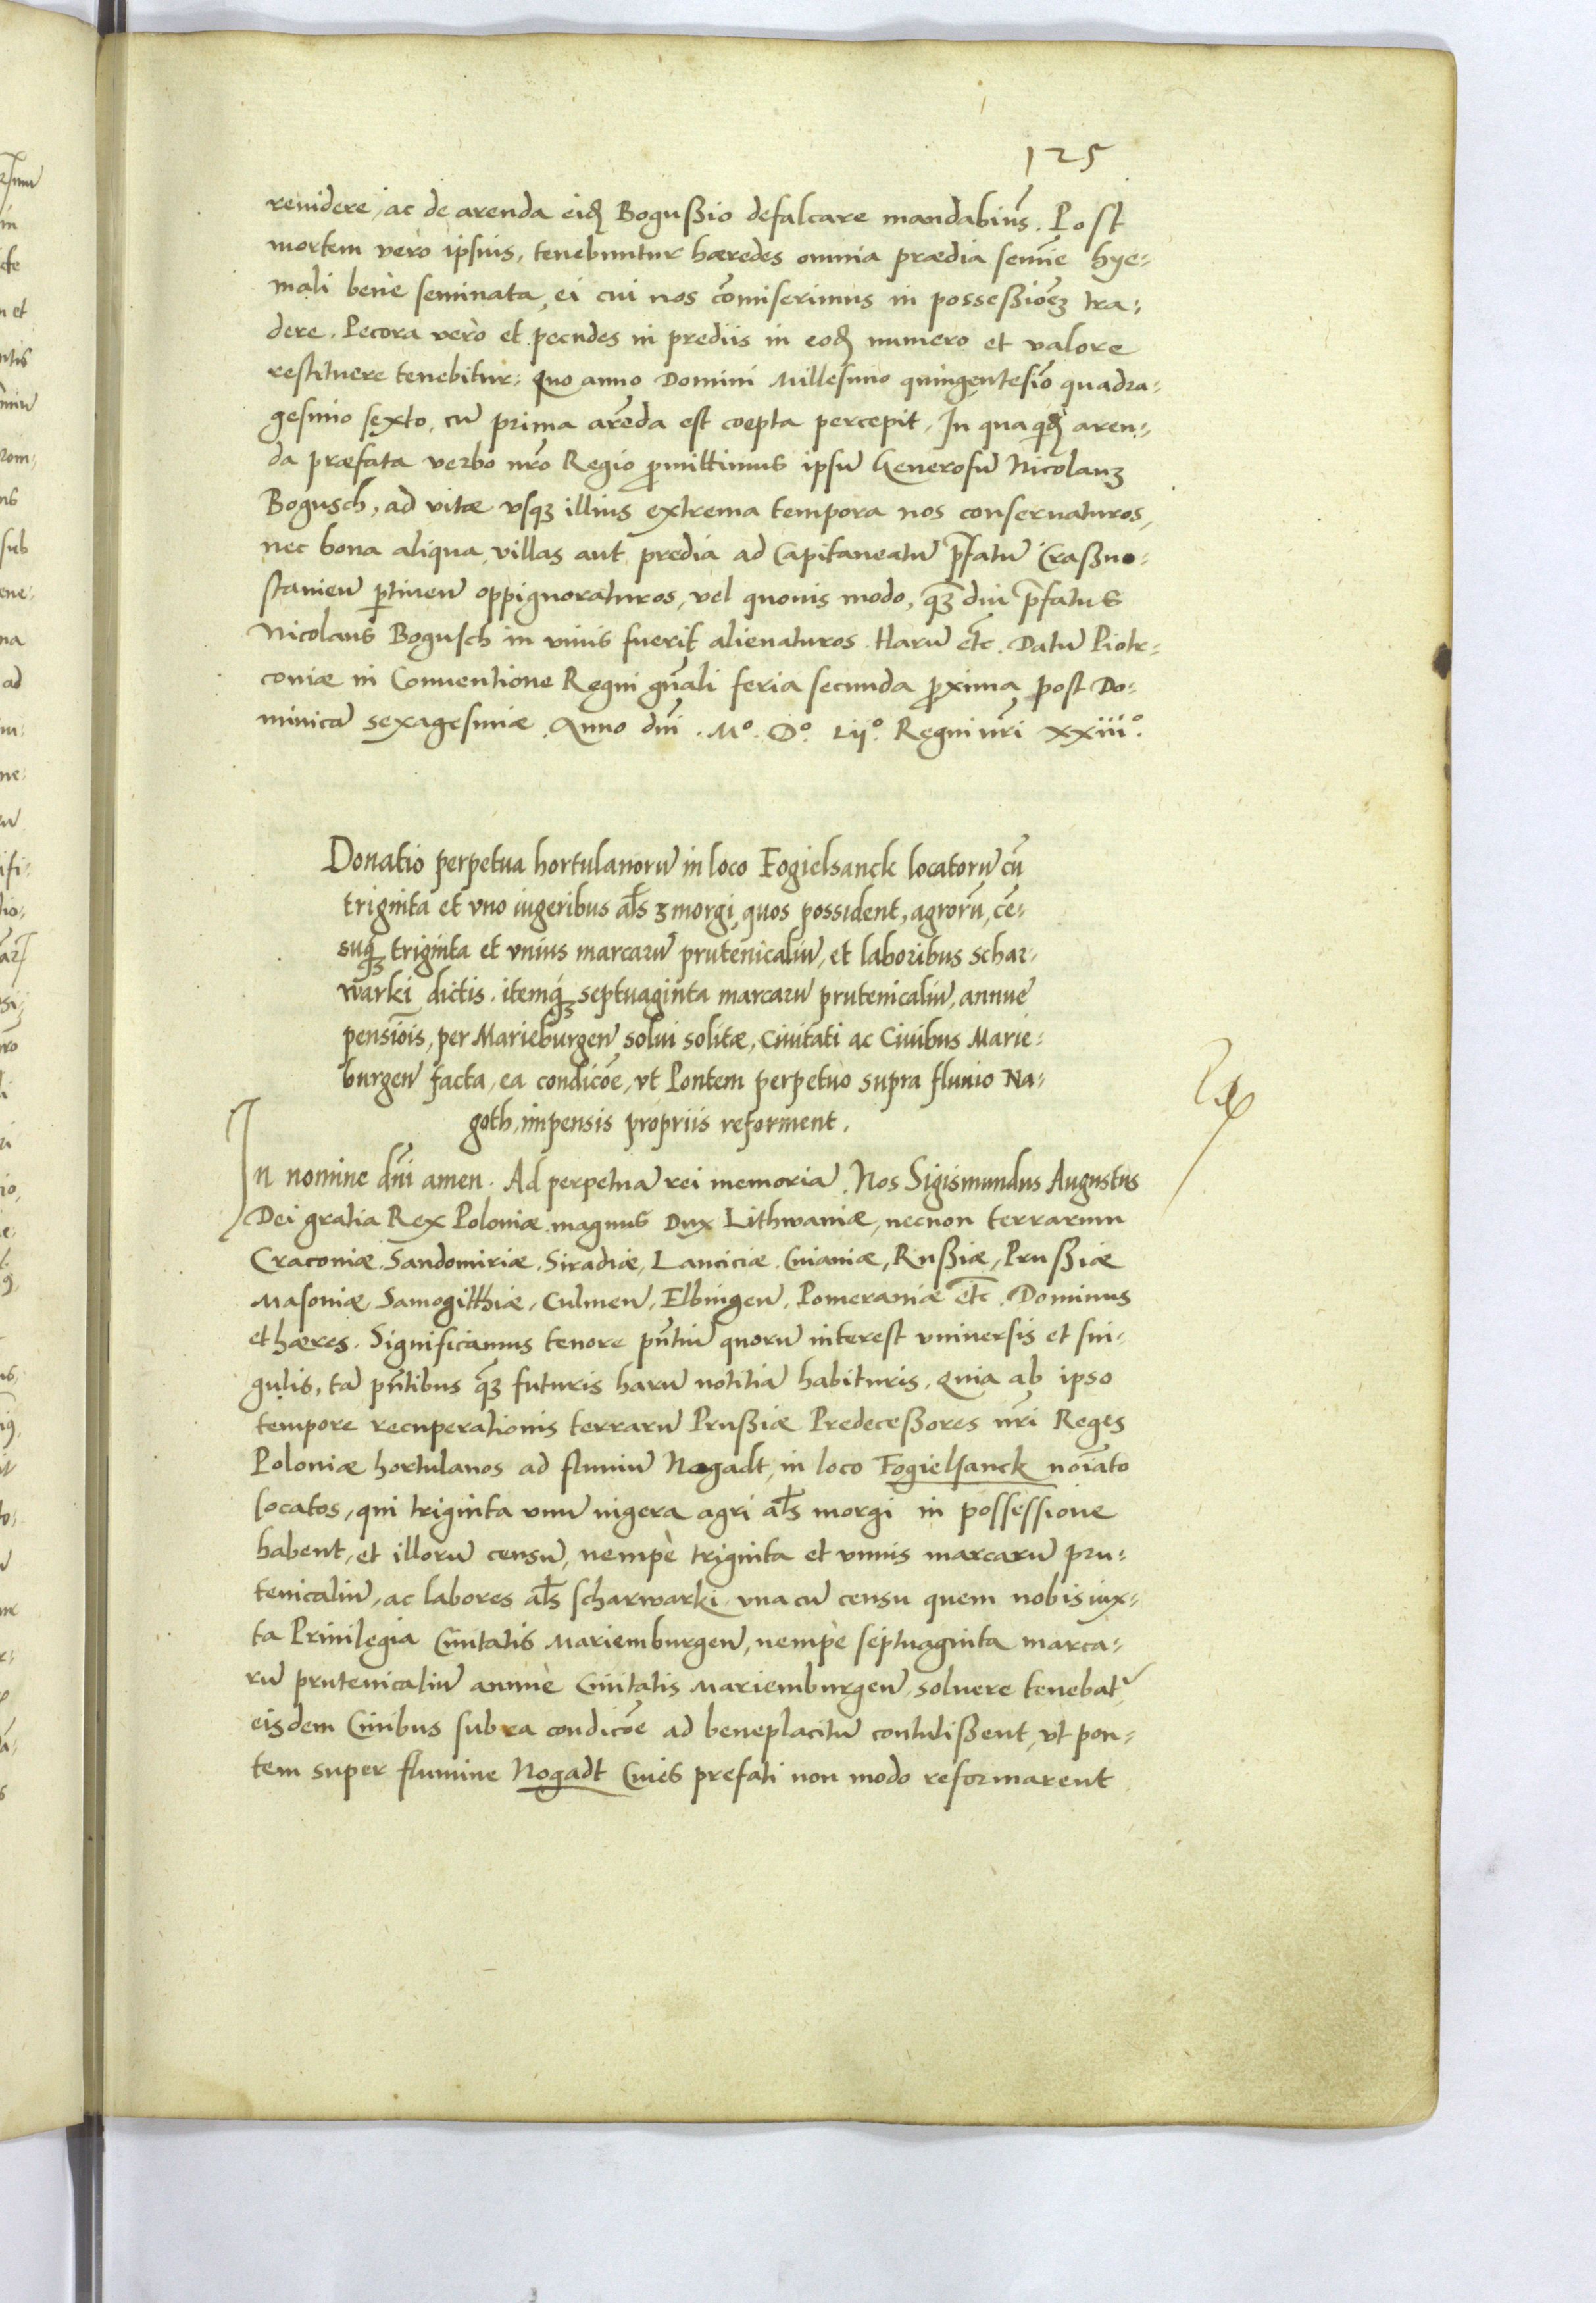 125
reuidere, ac de arenda eidẽ Bogußio defalcare mandabim̃s. Post
mortem verò ipsius, tenebuntur hæredes omnia prædia semĩe hye-
mali benè seminata, ei cui nos cõmiserimus in possessiõeȝ tra-
dere. Pecora verò et pecudes in prediis in eodẽ numero et valore
restituere tenebitur: Quo anno Domini Millesimo quingentesiõ quadra-
gesimo sexto, cũ prima arẽda est coepta percepit, In qua qidẽ aren-
da præfata verbo nr̃o Regio p̃mittimus ipsũ Generosũ Nicolauȝ
Bogusch, ad vitæ vsqȝ illius extrema tempora nos conseruaturos,
nec bona aliqua, villas aut predia ad Capitaneatũ p̃fatũ Craßno-
stauieñ p̃tineñ oppignoraturos, vel quouis modo, qȝ̃ diu p̃fatus
Nicolaus Bogusch in viuis fuerit alienaturos. Harũ etc̃. Datũ Piotr-
couiæ in Conuentione Regni gñali feria secunda p̃xima post Do-
minicã sexagesimæ. Anno dñi. Mº. Dº. Lijº. Regni nr̃i xxiiiº.
Donatio perpetua hortulanorũ in loco Fogielsanck locatorũ cũ
triginta et vno iugeribus al̃s ʒmorgi, quos possident, agrorũ, cẽ-
suqȝ triginta et vnius marcarũ prutenicaliũ, et laboribus schar-
warki dictis. itemqȝ septuaginta marcarũ prutenicaliũ, annue
pensiõis, per Marieburgeñ solui solitæ, Ciuitati ac Ciuibus Marie-
burgeñ facta, ea condicõe, vt Pontem perpetuo supra fluuio Na-
goth, impensis propriis reforment.
In nomine dñi amen. Ad perpetuã rei memoriã. Nos Sigismundus Augustus
Dei gratia Rex Poloniæ magnus Dux Lithwaniæ, necnon terrarum
Cracouiæ. Sandomiriæ. Siradiæ, Lanciciæ. Cuiauiæ, Rußiæ, Prußiæ
Masouiæ, Samogitthiæ, Culmeñ, Elbingeñ, Pomeraniæ etc̃. Dominus
et hæres. Significamus tenore pñtiũ quorũ interest vniuersis et sin-
gulis, tã pñtibus qȝ̃ futuris harũ notitiã habituris. Quia ab ipso
tempore recuperationis terrarũ Prußiæ Predeceßores nr̃i Reges
Poloniæ hortulanos ad fluuiũ Nogadt, in loco Fogielsanck noĩato
locatos, qui triginta vnũ iugera agri al̃s morgi in possessione
habent, et illorũ censũ, nempè triginta et vnius marcarũ pru-
tenicaliũ, ac labores al̃s scharwarki vna cũ censu quem nobis iux-
ta Priuilegia Ciuitatis Mariemburgeñ, nempè septuaginta marca-
rũ prutenicaliũ annuè Ciuitatis Mariemburgeñ soluere tenebat̃,
eisdem Ciuibus sub ea condicõe ad beneplacitũ contulißent, vt pon-
tem super flumine Nogadt Ciues prefati non modo reformarent